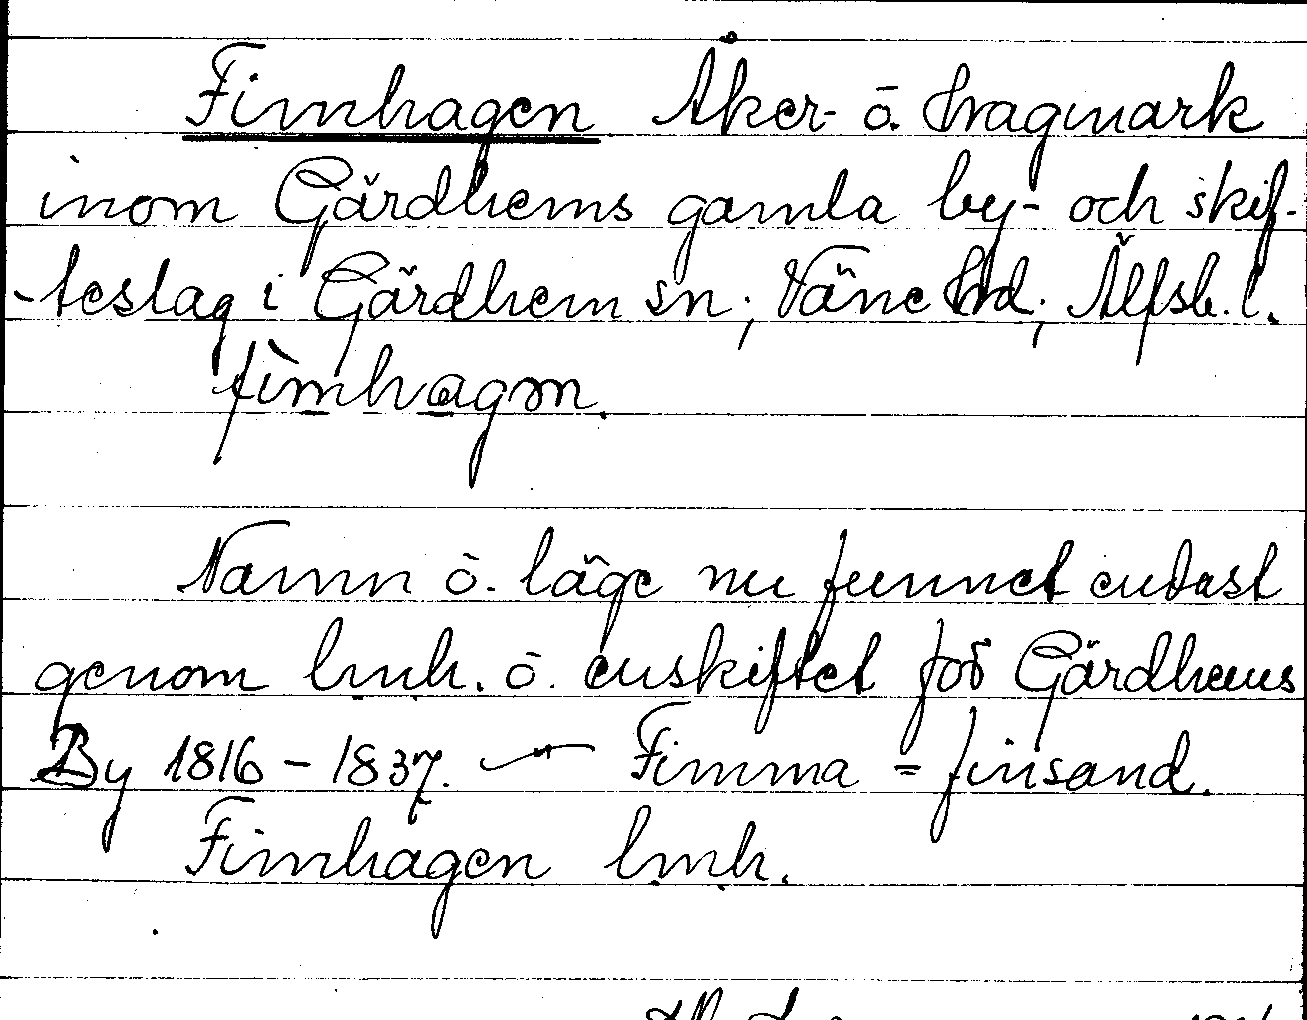 Fimhagen Åker- o. hagmark
inom Gärdhems gamla by- och skif-
-teslag i Gärdhem sn; Väne hd; Älfsb. l.
fìmhagɷn.
Namn o. läge nu funnet endast
genom lmh. o. enskiftet för Gärdhems
By 1816-1837. — Fimma = finsand.
Fimhagen lmh.